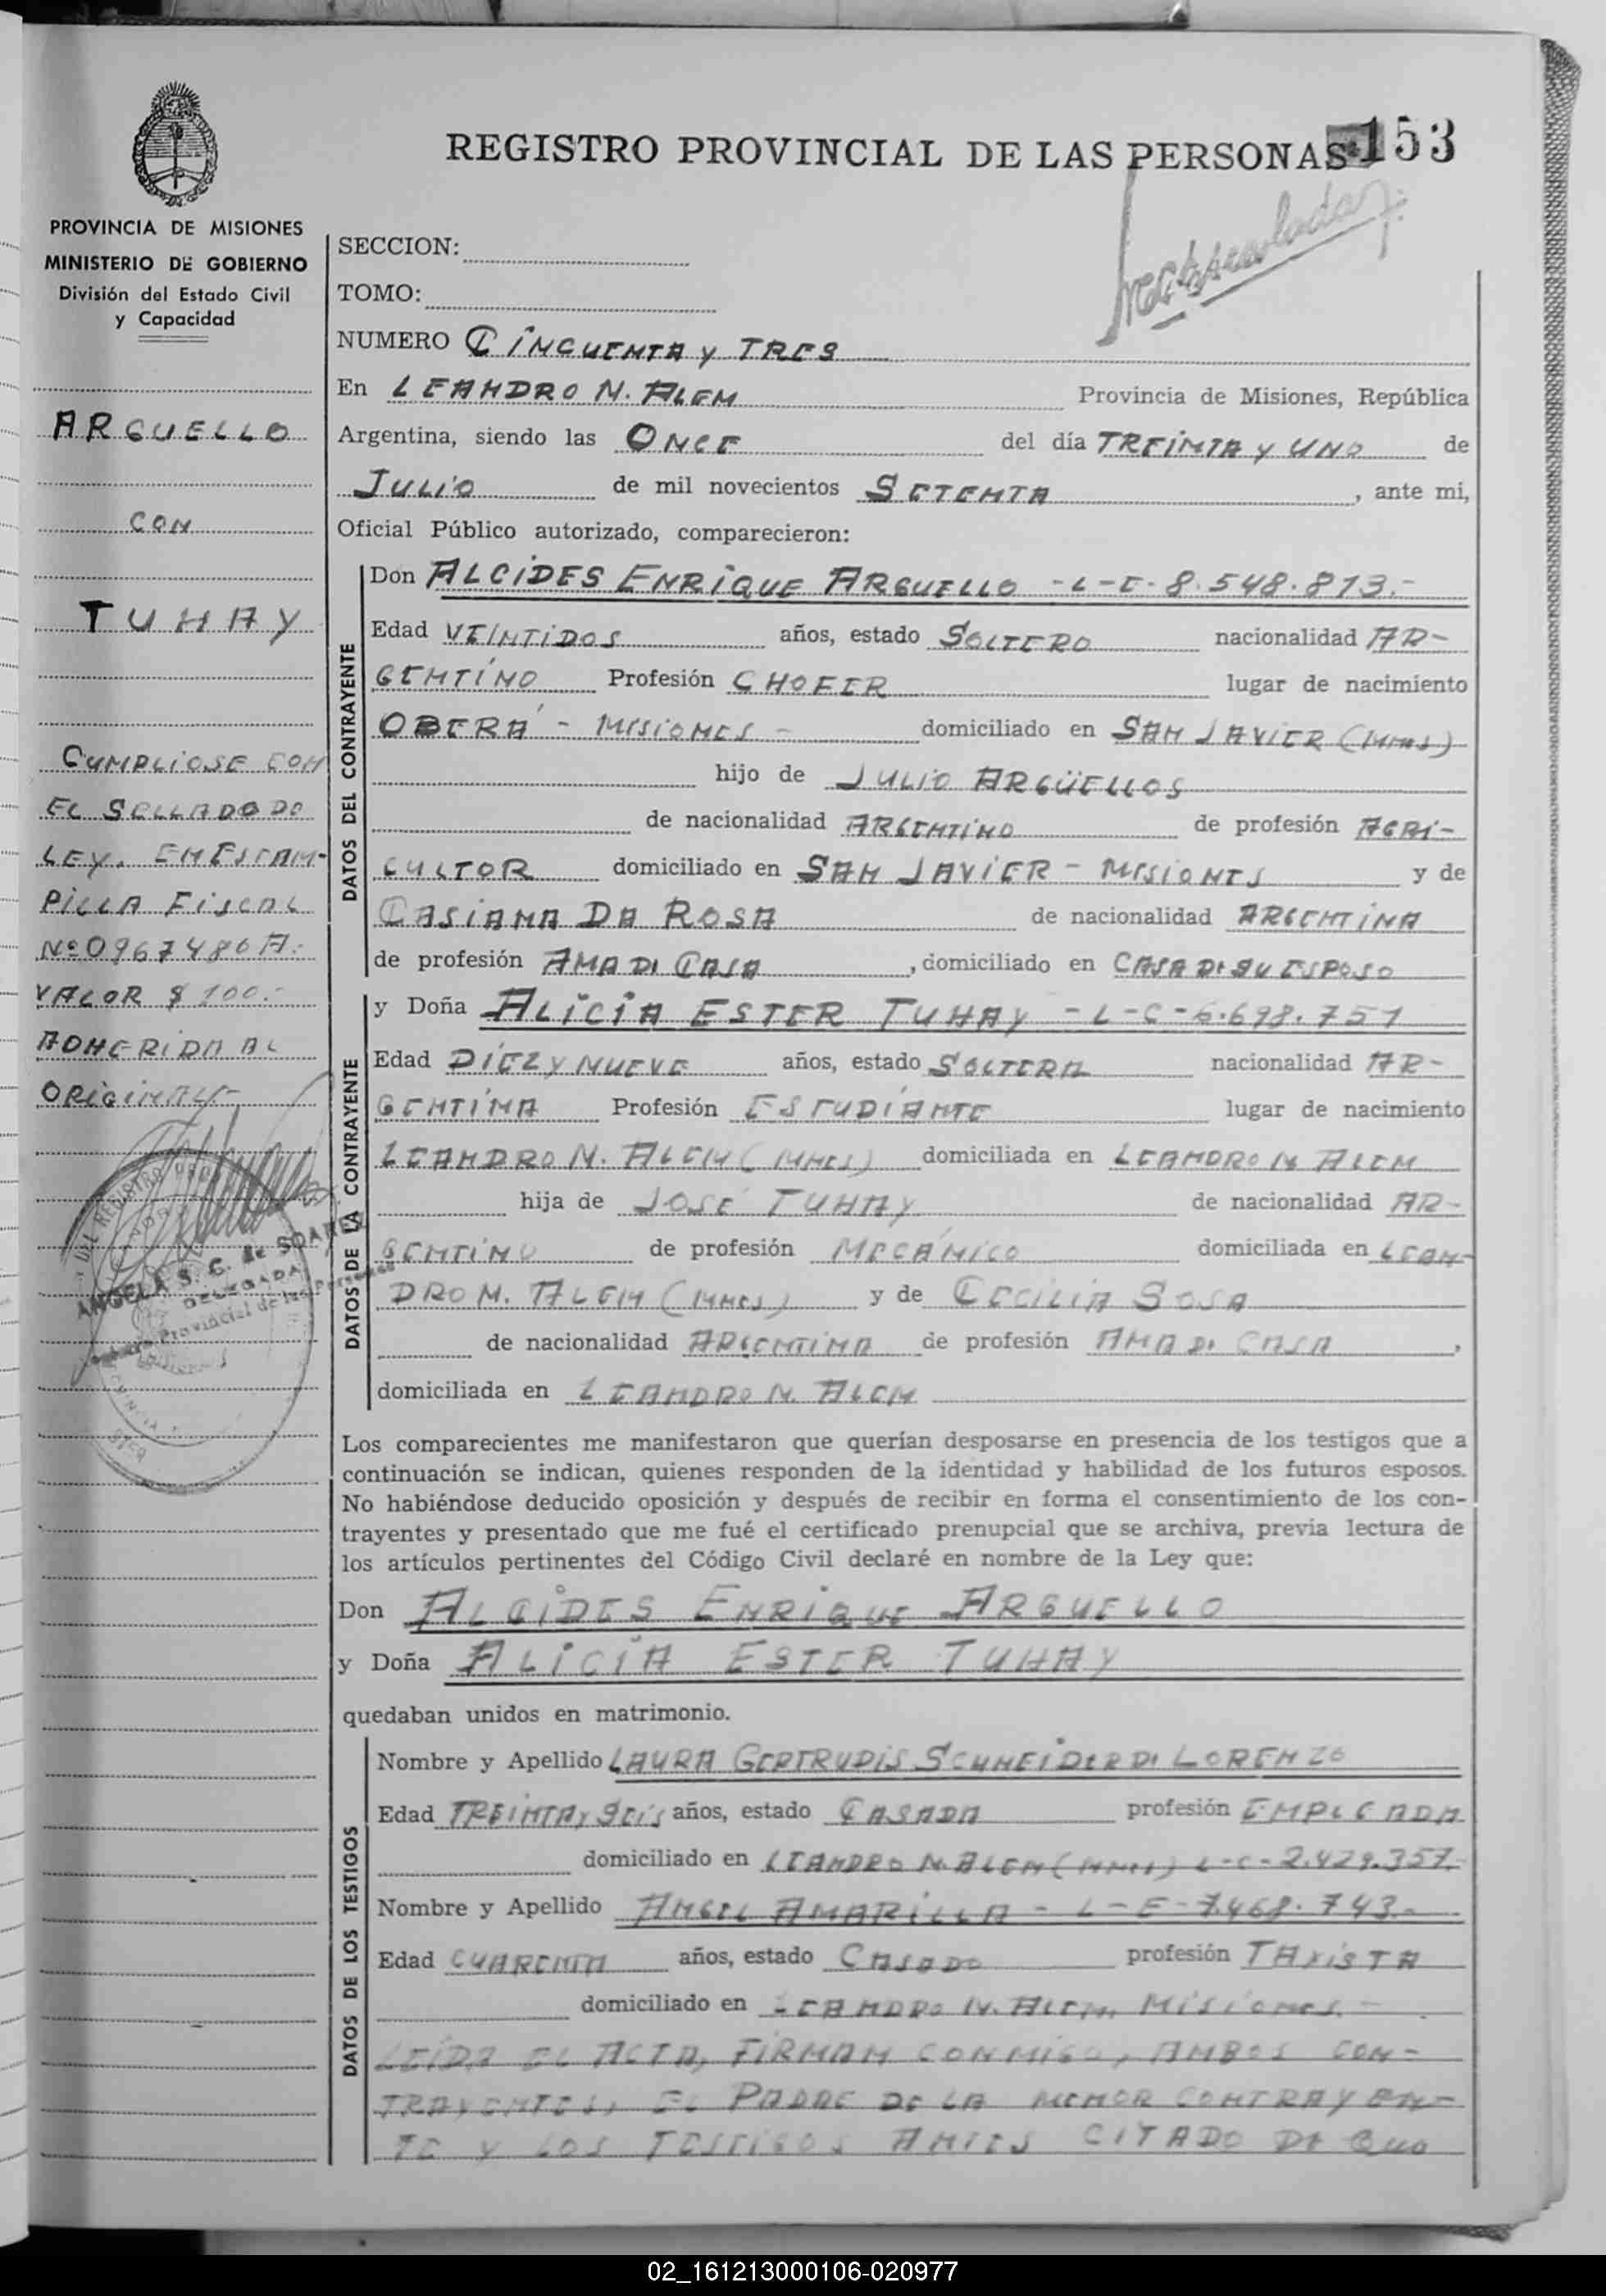 REGISTRO PROVINCIAL DE LAS PERSONAS 153
PROVINCIA DE MISIONES
MINISTERIO DE GOBIERNO
División del Estado Civil
y Capacidad
ARGUELLO
CON
TUHAY
CUMPLIOSE CON
EL SELLADO DE
LEY. EN ESTAM-
PILLA FISCAL
Nº 0967486 A.
VALOR $ 100.-
ADHERIDA AL
ORIGINAL.-
ANGELA S. G. de SOAREZ
DELEGADA
Provincial de las Personas
SECCION:
TOMO:
NUMERO CINCUENTA Y TRES
En LEANDRO N. ALEM Provincia de Misiones, República
Argentina, siendo las ONCE del día TREINTA Y UNO de
JULIO de mil novecientos SETENTA , ante mi,
Oficial Público autorizado, comparecieron:
DATOS DEL CONTRAYENTE
Don ALCIDES ENRIQUE ARGUELLO -L-E- 8.548.813.-
Edad VEINTIDOS años, estado SOLTERO nacionalidad AR-
GENTINO Profesión CHOFER lugar de nacimiento
OBERÁ - MISIONES - domiciliado en SAN JAVIER (Mnes)
hijo de JULIO ARGÜELLOS
de nacionalidad ARGENTINO de profesión AGRI-
CULTOR domiciliado en SAN JAVIER - MISIONES y de
CASIANA DA ROSA de nacionalidad ARGENTINA
de profesión AMA DE CASA , domiciliado en CASA DE SU ESPOSO
DATOS DE LA CONTRAYENTE
y Doña ALICIA ESTER TUHAY - L-C-6.698.751
Edad DIEZ Y NUEVE años, estado SOLTERA nacionalidad AR-
GENTINA Profesión ESTUDIANTE lugar de nacimiento
LEANDRO N. ALEM (MNES) domiciliada en LEANDRO N. ALEM
hija de JOSÉ TUHAY de nacionalidad AR-
GENTINO de profesión MECÁNICO domiciliada en LEAN-
DRO N. ALEM (MNES) y de CECILIA SOSA
de nacionalidad ARGENTINA de profesión AMA DE CASA ,
domiciliada en LEANDRO N. ALEM
Los comparecientes me manifestaron que querían desposarse en presencia de los testigos que a
continuación se indican, quienes responden de la identidad y habilidad de los futuros esposos.
No habiéndose deducido oposición y después de recibir en forma el consentimiento de los con-
trayentes y presentado que me fué el certificado prenupcial que se archiva, previa lectura de
los artículos pertinentes del Código Civil declaré en nombre de la Ley que:
Don ALCIDES ENRIQUE ARGUELLO
y Doña ALICIA ESTER TUHAY
quedaban unidos en matrimonio.
DATOS DE LOS TESTIGOS
Nombre y Apellido LAURA GERTRUDIS SCHNEIDER DE LORENZO
Edad TREINTA Y SEIS años, estado CASADA profesión EMPLEADA
domiciliado en LEANDRO N. ALEM (MNES) L-C-2.429.357.-
Nombre y Apellido ANGEL AMARILLA - L-E-7.468.743.-
Edad CUARENTA años, estado CASADO profesión TAXISTA
domiciliado en LEANDRO N. ALEM, MISIONES.-
LEÍDA EL ACTA, FIRMAN CONMIGO, AMBOS CON-
TRAYENTES, EL PADRE DE LA MENOR CONTRAYEN-
TE Y LOS TESTIGOS ANTES CITADO DE QUE
02_161213000106-020977